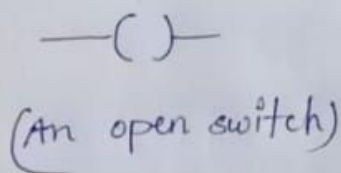 (An open switch)